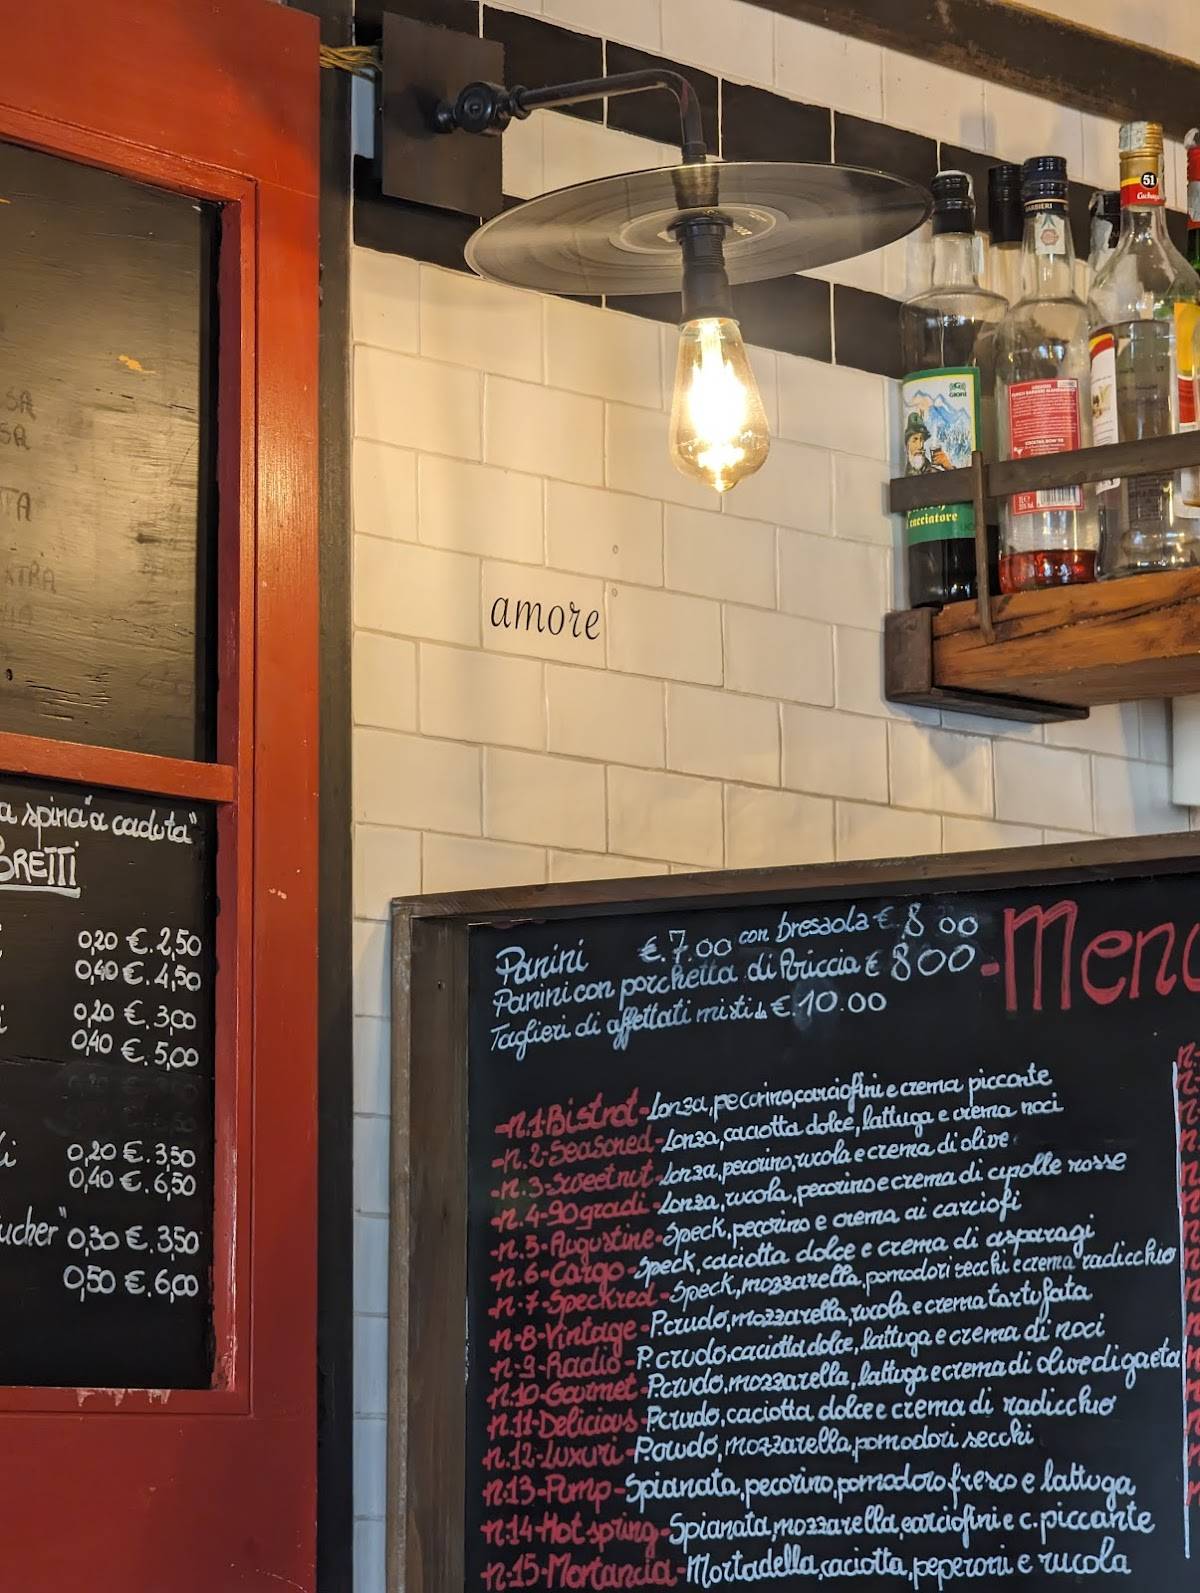 51
BARBIERI
GIORI
cacciatore
amore
SA
SA
TA
XTRA
a spina "a caduta"
BRETTI
0,20 €.2,50
0,40 €.4,50
0,20 €.3,00
0,40 €.5,00
0,20 €.3,50
0,40 €.6,50
ucher" 0,30 €.3,50
0,50 €.6,00
Panini €.7.00 con bresaola €.8 00
Panini con porchetta di Ariccia € 800
Taglieri di affettati misti da €.10.00
-Menu
-n.1-Bistrot-Lonza,pecorino,carciofini e crema piccante
-n.2-Seasoned-Lonza,caciotta dolce,lattuga e crema noci
-n.3-sweetnut-Lonza,pecorino,rucola e crema di olive
-n.4-90gradi-Lonza,rucola,pecorino e crema di cipolle rosse
-n.5-Augustine-Speck,pecorino e crema di carciofi
-n.6-Cargo-Speck,caciotta dolce e crema di asparagi
-n.7-Speckred-Speck,mozzarella,pomodori secchi e crema radicchio
-n-8-Vintage-P.crudo,mozzarella,rucola e crema tartufata
-n-9-Radio-P.crudo,caciotta dolce,lattuga e crema di noci
n.10-Gourmet-P.crudo,mozzarella,lattuga e crema di olive di gaeta
n.11-Delicious-P.crudo,caciotta dolce e crema di radicchio
n.12-Luxuri-P.crudo,mozzarella,pomodori secchi
n.13-Pump-Spianata,pecorino,pomodoro fresco e lattuga
n.14-Hot spring-Spianata,mozzarella,carciofini e c.piccante
n.15-Mortancia-Mortadella,caciotta,peperoni e rucola